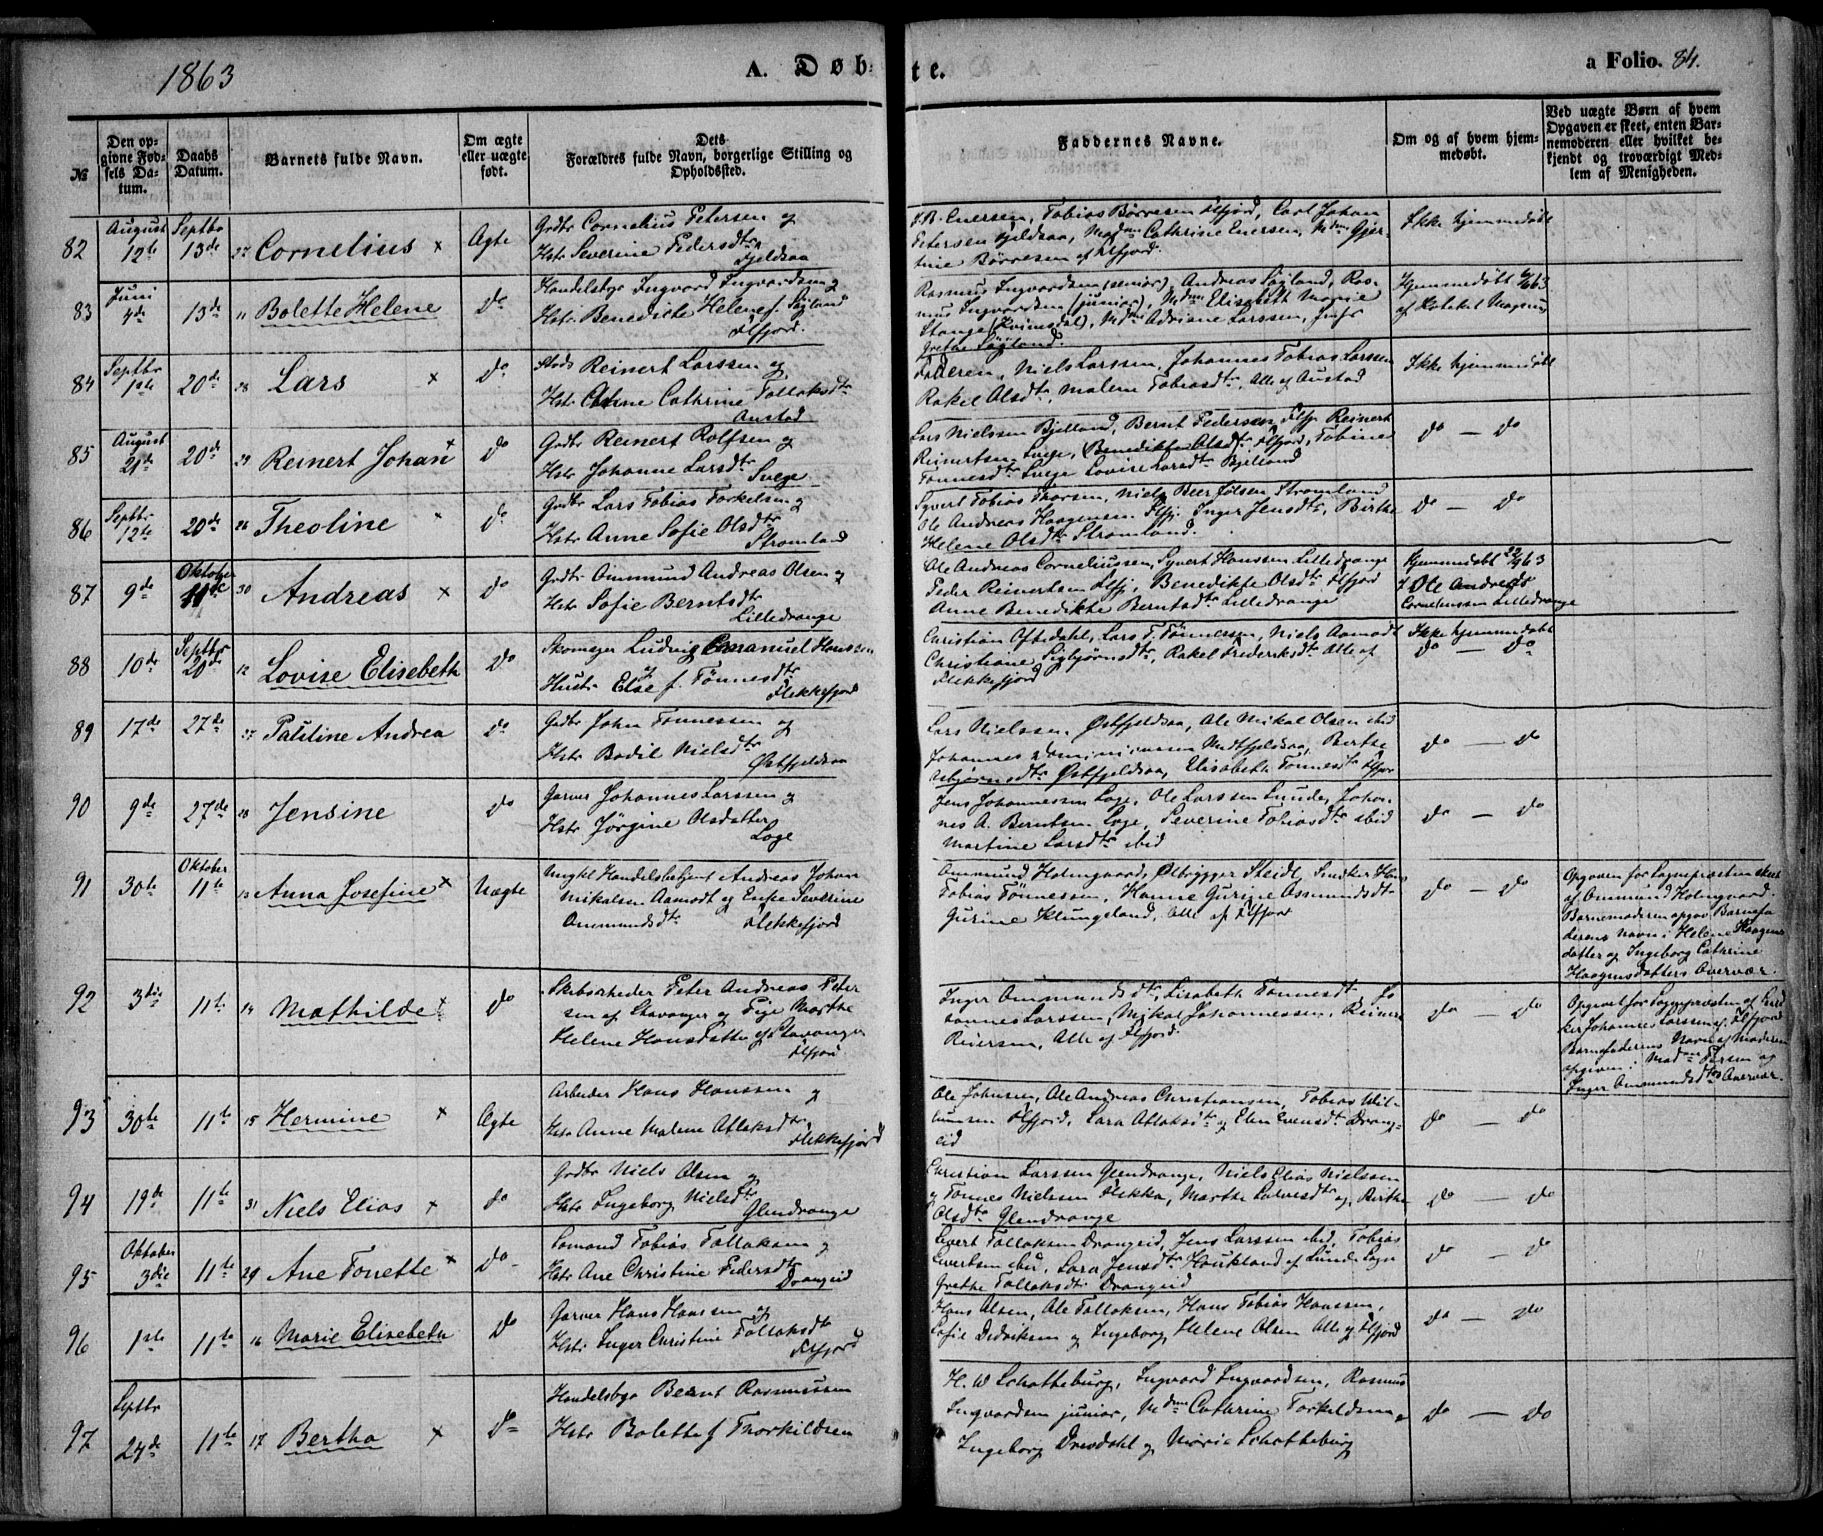 1863
A. Døbte.
a Folio. 84.
№
Den opgivne Fødsels Datum.
Daabs Datum.
Barnets fulde Navn.
Om ægte eller uægte født.
Dets Forældres fulde Navn, borgerlige Stilling og Opholdssted.
Faddernes Navne.
Om og af hvem hjemmedøbt.
Ved uægte Børn af hvem Opgaven er skeet, enten Barnemoderen eller hvilket bekjendt og troværdigt Medlem af Menigheden.
82 August 12te Septbr 13de 27 Cornelius x Ægte
Grdbr Cornelius Petersen og
Hstr Severine Pedersdtr
Fjeldsaa
Enersen, Tobias Børresen Flfjord, Carl Johan
Petersen Fjeldsaa, Madm Cathrine Enersen, Mdm Gjer-
tine Børresen af Flfjord.
Ikke hjemmedøbt
83 Juni 4de 13de 11 Bolette Helene Do
Handelsbgr Ingvard Ingvardsen og
Hstr Benedicte Helene f. Søyland
Flfjord.
Rasmus Ingvardsen (senior), Andreas Søyland, Ras-
mus Ingvardsen (junior), Mdm Elisabeth Marie
Stange (Kvinesdal), Mdm Adriane Larssen, Jmfr
Grethe Søyland.
Hjemmedøbt 6/63
84 Septbr 1ste 20de 28 Lars x Do
Reinert Larssen og
Hstr Anne Cathrine Tollaksdtr
Austad
Faderen, Niels Larssen, Johannes Tobias Larssen
Rakel Olsdtr, Malene Tobiasdtr, Alle af Austad
Ikke hjemmedøbt
85 August 21de 20de 29 Reinert Johan x Do
Grdbr Reinert Rolfsen og
Hstr Johanne Larsdtr
Svege
Lars Nielssen Bjelland, Bernt Pedersen Flfj. Reinert
Reinertsen Svege, Benedikte Olsdtr Flfjord, Tobine
Tønnesdtr Svege Lovise Larsdtr Bjelland
Do — Do
86 Septbr 12te 20de 26 Theoline x Do
Grdbr Lars Tobias Torkelsen og
Hstr Anne Sofie Olsdtr
Strømland
Syvert Tobias Thorsen, Niels Beer Jølsen Strømland
Ole Andreas Haagensen Flfj. Inger Jensdtr, Birthe
Helene Olsdtr Strømland.
Do — Do
87 9de Oktober 11te 30 Andreas x Do
Grdbr Ommund Andreas Olsen og
Hstr Sofie Berntsdtr
Lilledrange
Ole Andreas Corneliussen, Syvert Hanssen Lilledrange
Peder Reinertsen Flfj, Benedikte Olsdtr Flfjord
Anne Benedikte Berntsdtr Lilledrange
Hjemmedøbt 22/9 63
Ole Andreas
Corneliussen Lilledrange
88 10de Septbr 20de 12 Lovise Elisebeth Do
Skomager Ludvig Emanuel Hanssen
Hustr Else f. Tønnesdtr
Flekkefjord
Christian Oftedahl, Lars T. Tønnessen, Niels Aamodt
Christiane Sigbjørnsdtr, Rakel Frederiksdtr Alle af
Flekkefjord
Ikke hjemmedøbt
Do — Do
89 17de 27de 27 Pauline Andrea Do
Grdbr John Tønnessen og
Hstr Bodil Nielsdtr
Østfjeldsaa
Lars Nielssen Østfjeldsaa, Ole Mikal Olsen ibid
Johannes Midtfjeldsaa, Berthe
Asbjørnsdtr Østfjeldsaa, Elisabeth Tønnesdtr Flfjor
Do — Do
90 9de 27de 28 Jensine Do
Garver Johannes Larssen og
Hstr Jørgine Olsdatter
Loge
Jens Johannessen Loge, Ole Larssen Lunde, Johan-
nes A. Berntsen Loge, Severine Tobiasdtr ibid
Martine Larsdtr ibid
Do — Do
91 30te Oktober 11te 13 Anna Josefine x Uægte
Ungkl Handelsbetjent Andreas Johan
Mikalsen Aamodt og Enke Severine
Ommundsdtr Flekkefjord
Ommund Holmgaard, Ølbrygger Steidl, Snedker Hans
Tobias Tønnessen, Hanne Gurine Osmundsdtr
Gurine Klungeland, Alle af Flfjord
Do — Do
Opgaven for Sognepræsten skeet
af Ommund Holmgaard.
Barnemoderen opgav Barnefa-
derens Navn i Helene Haagens-
datter og Ingeborg Cathrine
Haagensdatters Overvær.
92 3die 11te 14 Mathilde x Do
Skibsrheder Peter Andreas Peter
sen af Stavanger og Pige Marthe
Helene Hansdatter af Stavanger
Flfjord
Inger Ommundsdtr, Lisabeth Tønnesdtr Jo
hannes Larssen, Mikal Johannessen, Reinert
Reiersen, Alle af Flfjord.
Do — Do
Opgivet for Sognepræsten af Sned
ker Johannes Larssen af Flfjord
Barnefaderens Navn af Moderen
opgiven i Madm Iversen og
Inger Ommundsdtrs Overvær.
93 30te 11te 15 Hermine x Ægte
Arbeider Hans Hanssen og
Hstr Anne Malene Atlaksdtr
Flekkefjord
Ole Johnsen, Ole Andreas Christiansen, Tobias Wil-
umsen Flfjord, Sara Atlaksdtr og Elen Evensdtr Drang-
eid
Do — Do
94 19de 11te 31 Niels Elias x Do
Grdbr Niels Olsen og
Hstr Ingeborg Nielsdtr
Glendrange
Christian Larssen Glendrange, Niels Elias Nielssen
og Tønnes Nielssen Flikka, Marthe Salvesdtr og Birthe
Olsdtr Glendrange
Do — Do
95 Oktober 3die 11te 29 Ane Tonette x Do
Losmand Tobias Tollaksen og
Hstr Ane Christine Pedersdtr
Drangeid
Sivert Tollaksen Drangeid, Jens Larssen ibid, Tobias
Sivertsen ibid, Sara Jensdtr Haukland af Lunde Sogn
Grethe Tollaksdtr Drangeid
Do — Do
96 1ste 11te 16 Marie Elisebeth Do
Garver Hans Hanssen og
Hstr Inger Christine Tollaksdtr
Flfjord
Hans Olsen, Ole Tollaksen, Hans Tobias Hanssen,
Sofie Didriksen og Ingeborg Helene Olsen Alle af Flfjord
Do — Do
97 Septbr 24de 11te 17 Bertha x Do
Handelsbgr Bernt Rasmussen
Hstr Bolette f Thorkildsen
H. W Schatteburg, Ingvard Ingvardsen, Rasmus
Ingvardsen junior, Mdme Cathrine Torkeldsen
Ingeborg Dresdahl og Marie Schatteburg
Do — Do